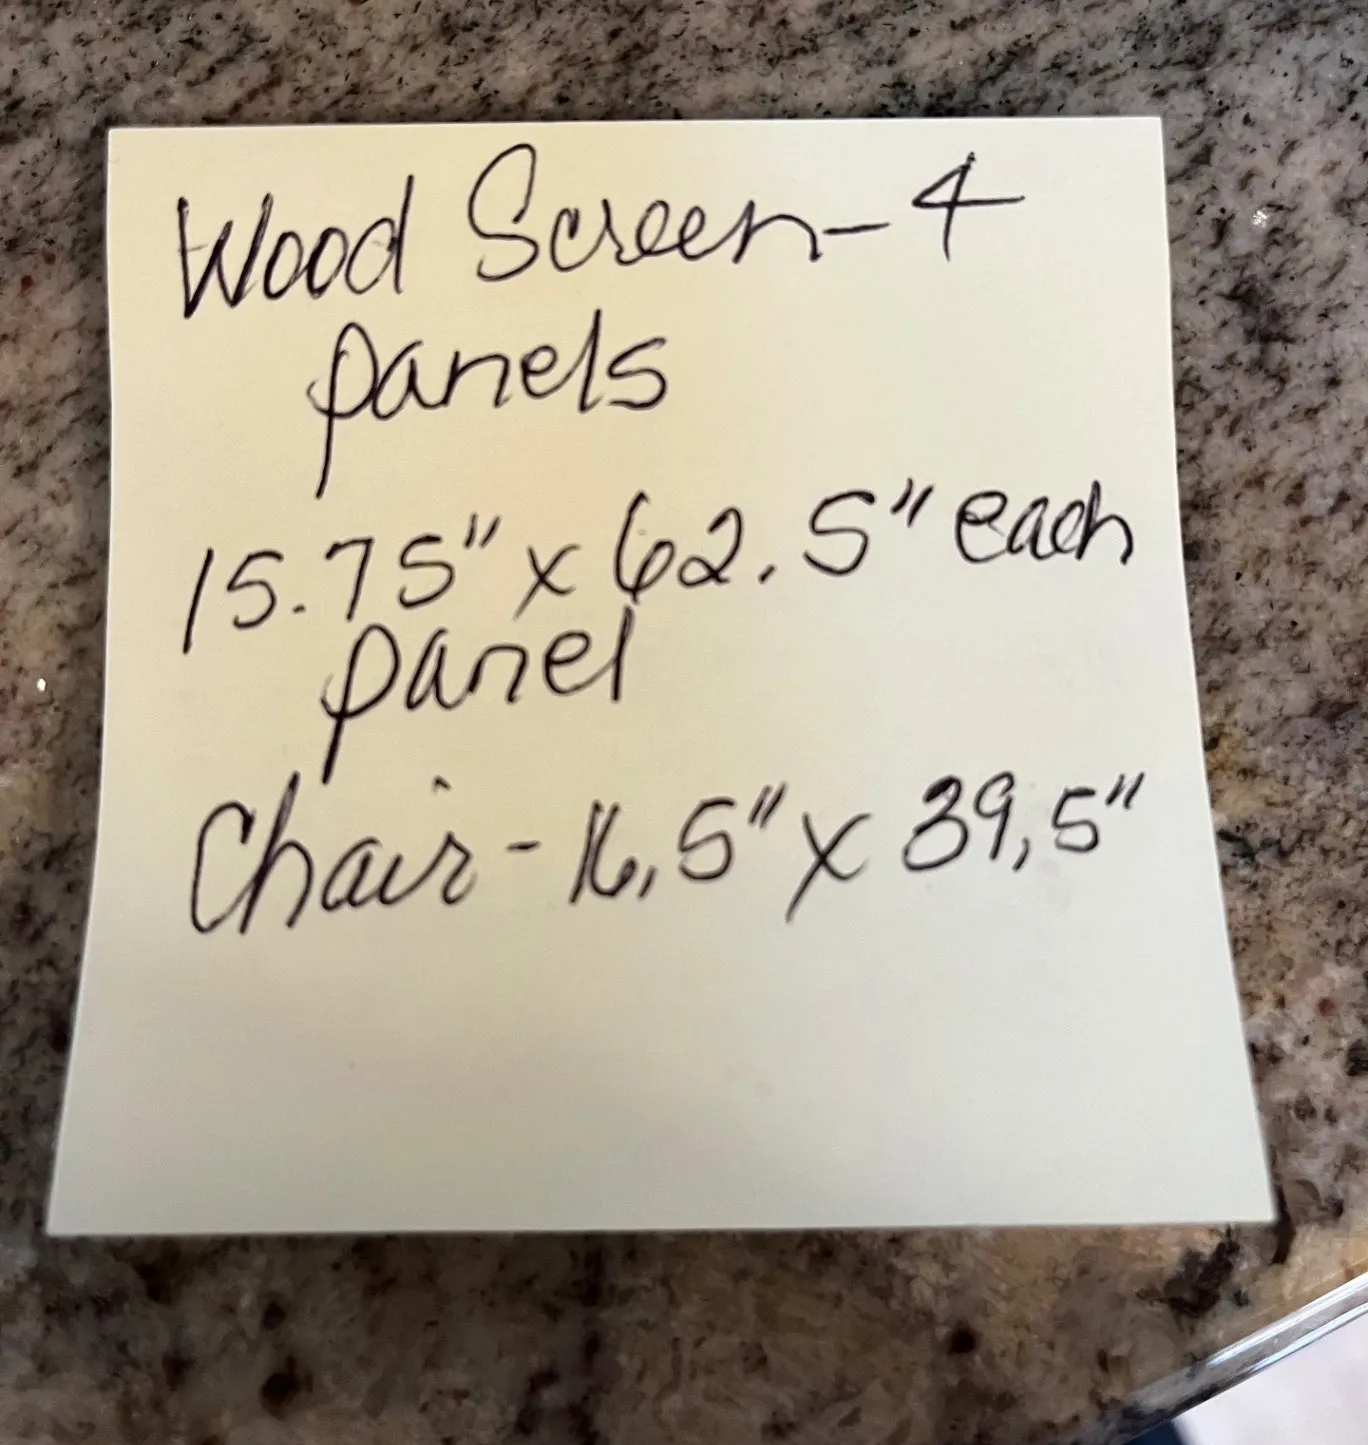 Wood Screen-4
panels
15.75" x 62.5" each
panel
Chair-16,5" x 39,5"